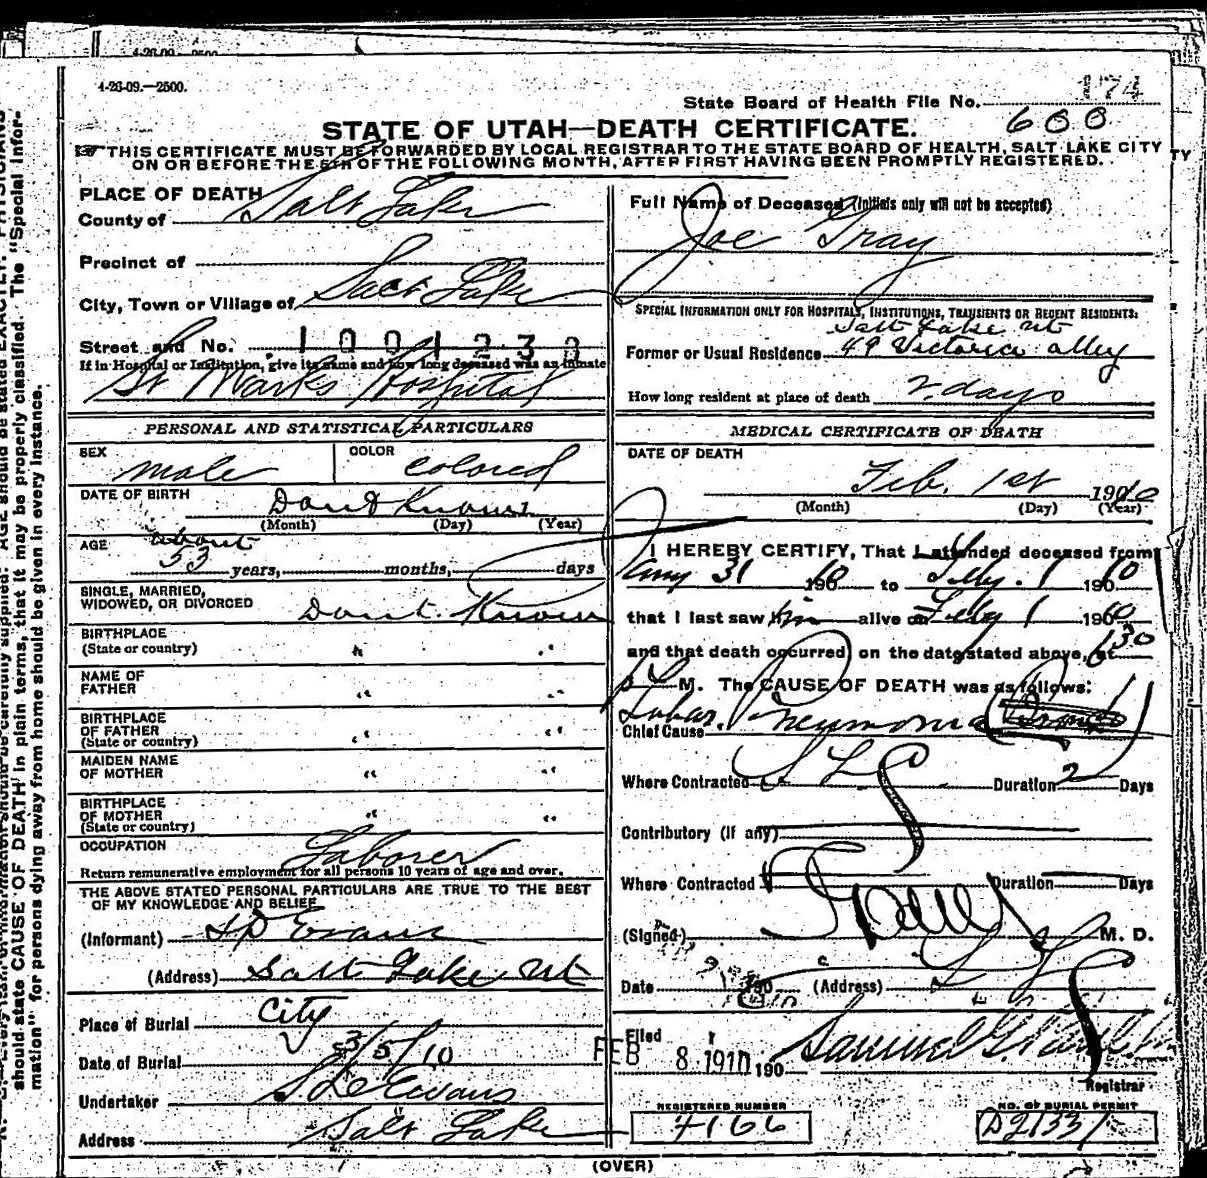 4-26-09.—2500.
174
State Board of Health File No.
600
STATE OF UTAH—DEATH CERTIFICATE.
THIS CERTIFICATE MUST BE FORWARDED BY LOCAL REGISTRAR TO THE STATE BOARD OF HEALTH, SALT LAKE CITY
ON OR BEFORE THE 5TH OF THE FOLLOWING MONTH, AFTER FIRST HAVING BEEN PROMPTLY REGISTERED.
PLACE OF DEATH
County of Salt Lake
Precinct of
City, Town or Village of Salt Lake
Street and No. 1001233
If in Hospital or Institution, give its name and how long deceased was an inmate
St Marks Hospital
PERSONAL AND STATISTICAL PARTICULARS
SEX male COLOR colored
DATE OF BIRTH Dont Know
(Month) (Day) (Year)
AGE about
53 years, months, days
SINGLE, MARRIED,
WIDOWED, OR DIVORCED Dont Know
BIRTHPLACE
(State or country) " "
NAME OF
FATHER " "
BIRTHPLACE
OF FATHER
(State or country) " "
MAIDEN NAME
OF MOTHER " "
BIRTHPLACE
OF MOTHER
(State or country) " "
OCCUPATION Laborer
Return remunerative employment for all persons 10 years of age and over.
THE ABOVE STATED PERSONAL PARTICULARS ARE TRUE TO THE BEST
OF MY KNOWLEDGE AND BELIEF
(Informant) S D Evans
(Address) Salt Lake Ut
Place of Burial City
Date of Burial 3/5/10
Undertaker S. D. Evans
Address Salt Lake
Full Name of Deceased (Initials only will not be accepted)
Joe Gray
SPECIAL INFORMATION ONLY FOR HOSPITALS, INSTITUTIONS, TRANSIENTS OR RECENT RESIDENTS:
Salt Lake Ut
Former or Usual Residence 49 Victoria alley
How long resident at place of death 2 days
MEDICAL CERTIFICATE OF DEATH
DATE OF DEATH
Feb. 1st 1910
(Month) (Day) (Year)
I HEREBY CERTIFY, That I attended deceased from
Jany 31 1910 to Feby. 1 1910
that I last saw him alive on Feby 1 1910
and that death occurred, on the date stated above, at 630
P M. The CAUSE OF DEATH was as follows:
Chief Cause Lobar Pneumonia
Where Contracted S L C Duration 2 Days
Contributory (if any)
Where Contracted Duration Days
(Signed) M. D.
Date 190 (Address) S L C
Filed FEB 8 1910 190 Samuel G. Paul
Registrar
REGISTERED NUMBER
7166
NO. OF BURIAL PERMIT
D2133
(OVER)
should state CAUSE OF DEATH in plain terms, that it may be properly classified. The "Special Infor-
mation" for persons dying away from home should be given in every instance.